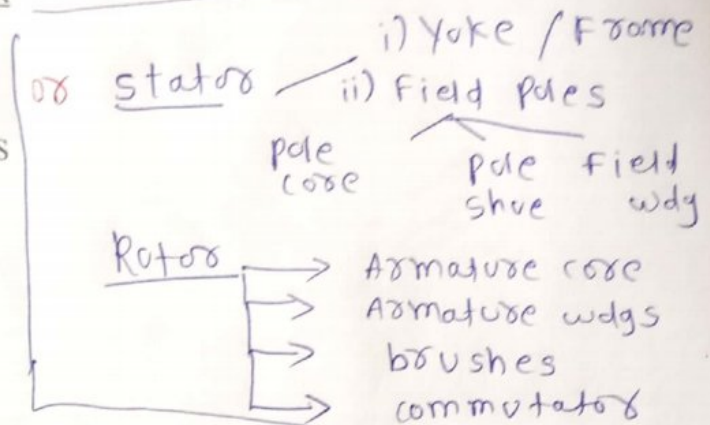 i) Yoke / Frame
or Stator ii) Field Poles
s
pole core
pole shoe
Field wdg
Rotor
Armature core
Armature wdgs
brushes
commutator